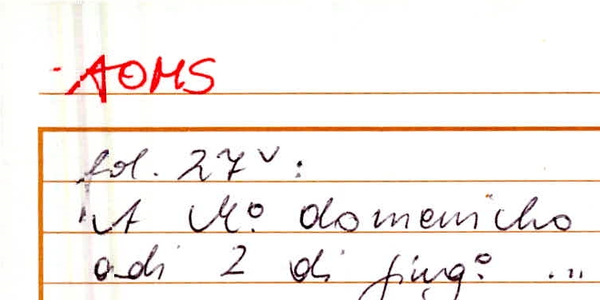 AOMS
fol. 27v:
A Mo domenicho
adi 2 di giugo ...